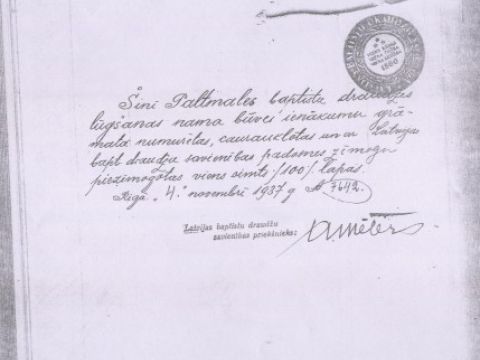 Šinī Paltmales baptistu draudzes
lūgšanas nama būves ienākumu grā-
matā numurētas, caurauklotas un ar Latvijas
bapt. draudžu savienības padomes zīmogu
piezīmogotas viens simts /100/ lapas.
Rīgā "4." novembrī 1937 g. № 7642.
Latvijas baptistu draudžu
savienības priekšnieks:
1860